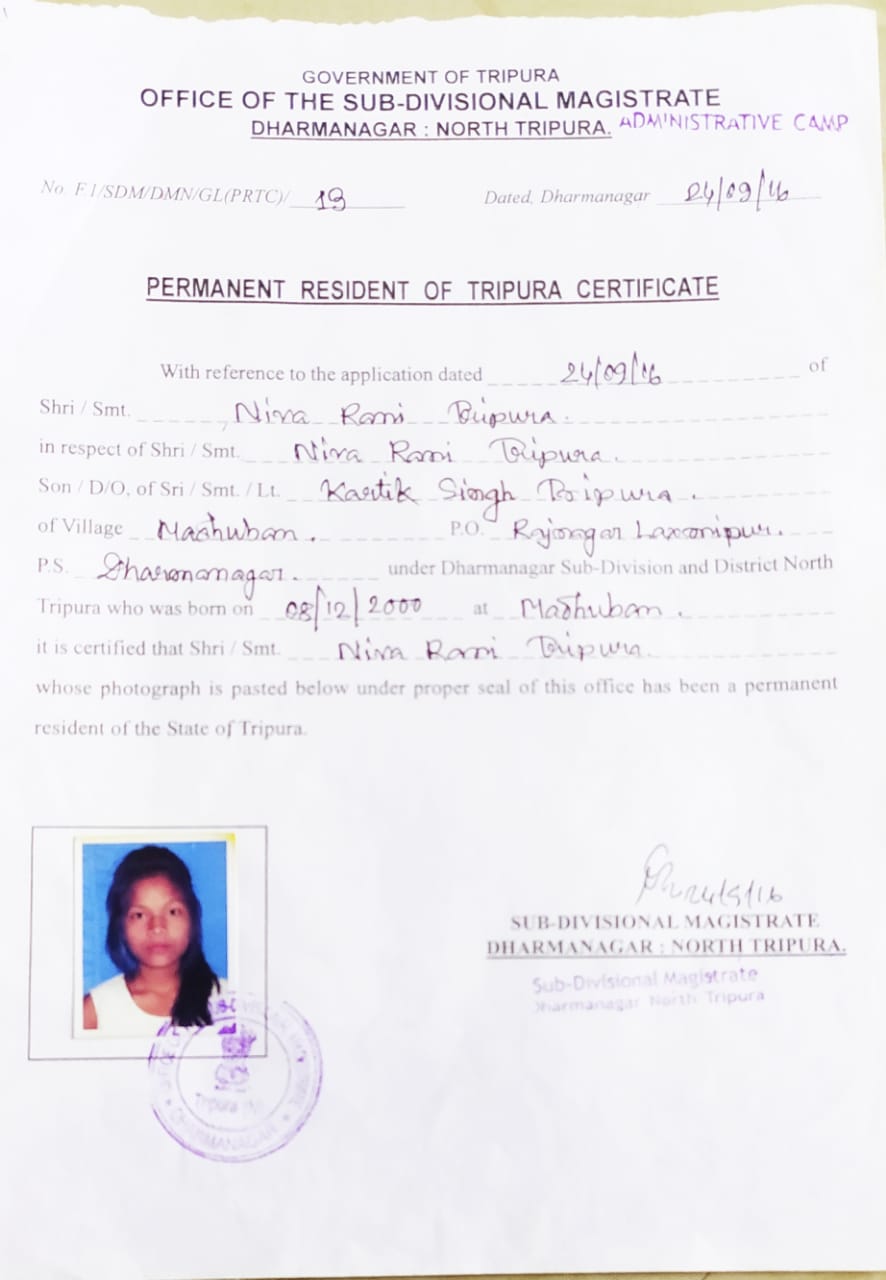 GOVERNMENT OF TRIPURA
OFFICE OF THE SUB-DIVISIONAL MAGISTRATE
DHARMANAGAR : NORTH TRIPURA. ADMINISTRATIVE CAMP
No. F.1/SDM/DMN/GL(PRTC)/ 19 Dated, Dharmanagar 24/09/16
PERMANENT RESIDENT OF TRIPURA CERTIFICATE
With reference to the application dated 24/09/16 of
Shri / Smt. Niva Rani Tripura.
in respect of Shri / Smt. Niva Rani Tripura.
Son / D/O, of Sri / Smt. / Lt. Kartik Singh Tripura.
of Village Madhuban. P.O. Rajnagar Laxmipur.
P.S. Dharmanagar. under Dharmanagar Sub-Division and District North
Tripura who was born on 08/12/2000 at Madhuban.
it is certified that Shri / Smt. Niva Rani Tripura.
whose photograph is pasted below under proper seal of this office has been a permanent
resident of the State of Tripura.
24/9/16
SUB-DIVISIONAL MAGISTRATE
DHARMANAGAR : NORTH TRIPURA.
Sub-Divisional Magistrate
Dharmanagar North Tripura
Tripura
DHARMANAGAR